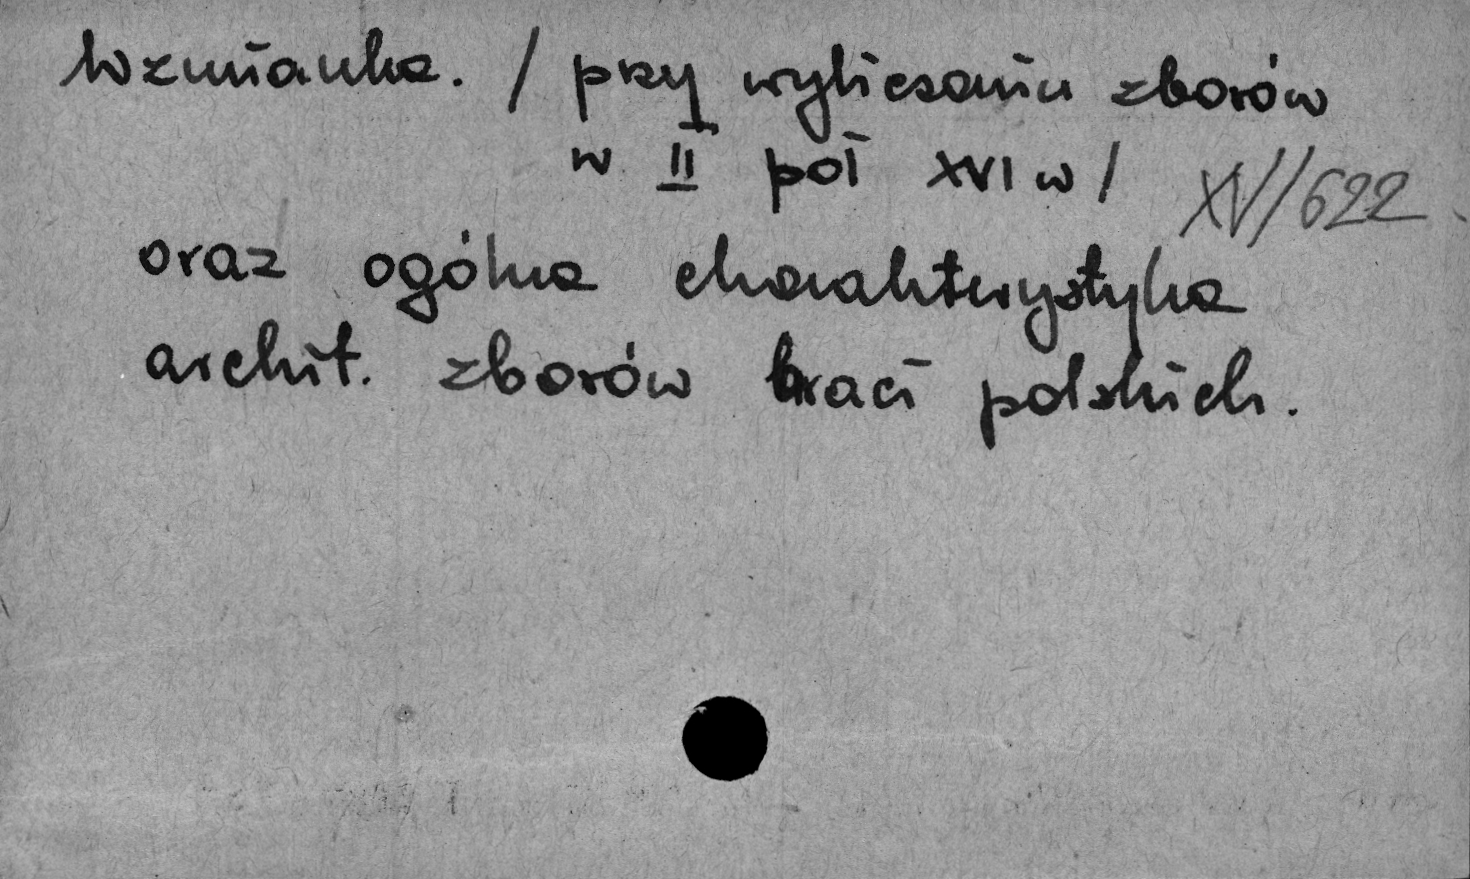 Wzmianka. / przy wyliczaniu zborów
w II poł XVI w /
XV/622
oraz ogólna charakterystyka
archit. zborów braci polskich.